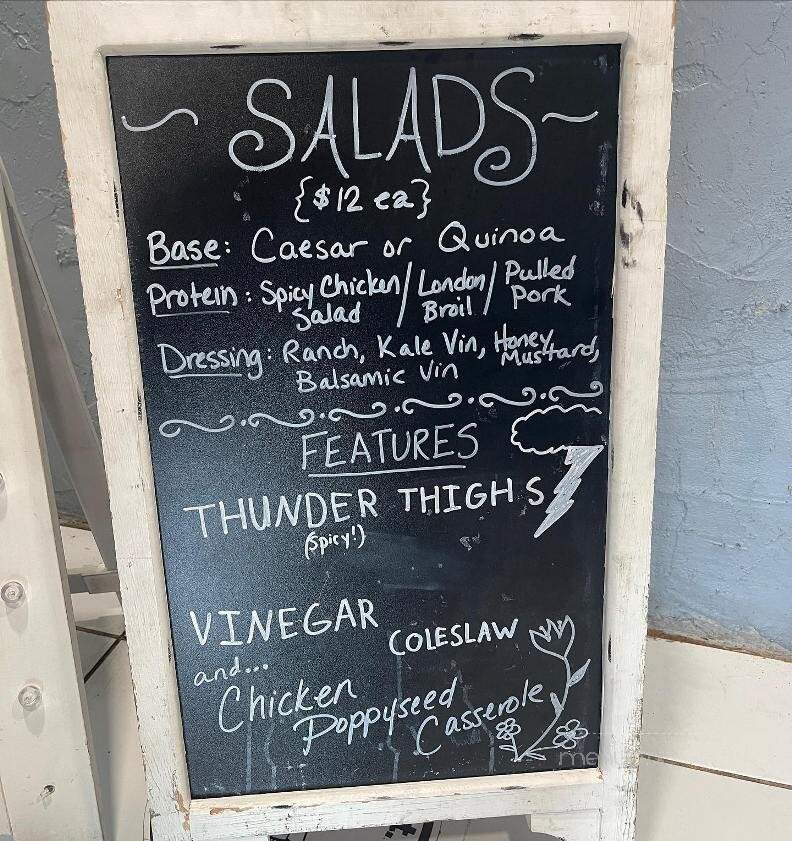 SALADS
{$12 ea}
Base: Caesar or Quinoa
Protein: Spicy Chicken Salad / London Broil / Pulled Pork
Dressing: Ranch, Kale Vin, Honey Mustard,
Balsamic Vin
FEATURES
THUNDER THIGHS
(Spicy!)
VINEGAR
COLESLAW
and...
Chicken
Poppyseed
Casserole